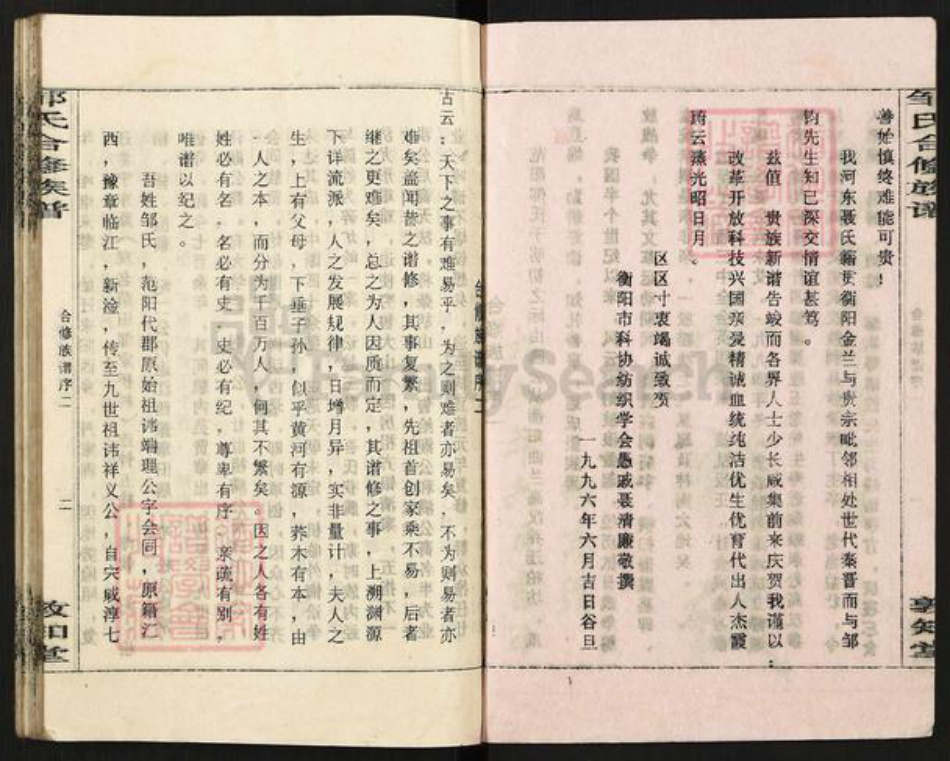 邹氏合修族谱
善始慎终难能可贵！
我河东聂氏籍贯衡阳金兰与贵宗毗邻相处世代秦晋而与邹
钧先生知己深交情谊甚笃。
兹值 贵族新谱告竣而各界人士少长咸集前来庆贺我谨以：
改革开放科技兴国亲爱精诚血统纯洁优生优育代出人杰霞
蔚云蒸光昭日月。
区区寸衷竭诚致贺
衡阳市科协纺织学会愚戚聂清廉敬撰
一九九六年六月吉日谷旦
敦知堂
合修族谱序二
古云：天下之事有难易乎，为之则难者亦易矣，不为则易者亦
难矣盖闻昔之谱修，其事复繁，先祖首创家乘不易，后者
继之更难矣，总之为人因质而定，其谱修之事，上溯渊源
下详流派，人之发展规律，日增月异，实非量计，夫人之
生，上有父母，下垂子孙，似乎黄河有源，荞木有本，由
一人之本，而分为千百万人，何其不繁矣。因之人各有姓
姓必有名，名必有史，史必有纪，尊卑有序，亲疏有别，
唯谱以纪之。
吾姓邹氏，范阳代郡原始祖讳端理公字会同，原籍江
西，豫章临江，新淦，传至九世祖讳祥义公，自宋咸淳七
邹氏合修族谱
合修族谱序二
二
敦知堂